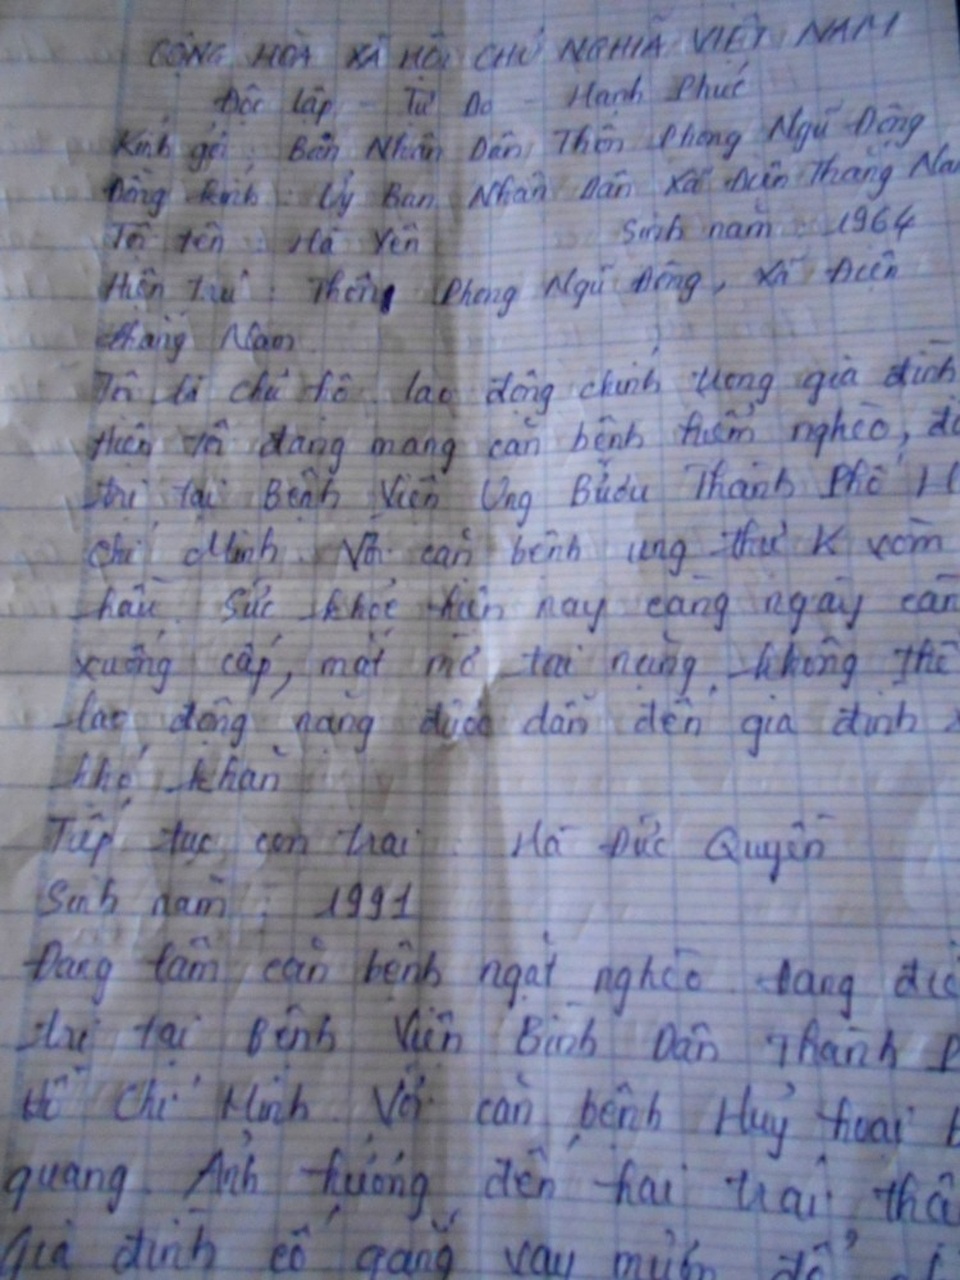 CỘNG HOÀ XÃ HỘI CHỦ NGHĨA VIỆT NAM
Độc lập - Tự Do - Hạnh Phúc
Kính gởi : Ban Nhân Dân Thôn Phong Ngũ Đông
Đồng kính : Uỷ Ban Nhân Dân Xã Điện Thắng Nam
Tôi tên : Hà Yên Sinh năm : 1964
Hiện trú : Thôn Phong Ngũ Đông, xã Điện
thắng Nam
Tôi là chủ hộ lao động chính trong gia đình
Hiện tôi đang mang căn bệnh hiểm nghèo,
trị tại Bệnh Viện Ung Bướu Thành Phố
Chí Minh. Với căn bệnh ung thư K vòm
hầu. Sức khỏe hiện nay càng ngày
xuống cấp, mắt mờ tai nặng không thể
lao động nặng được dẫn đến gia đình
khó khăn
Tiếp tục con trai : Hà Đức Quyền
Sinh năm : 1991
Đang lâm căn bệnh ngặt nghèo đang
trị tại Bệnh Viện Bình Dân Thành
Hồ Chí Minh. Với căn bệnh Huỷ hoại
quang. Ảnh hưởng đến hai trái
Gia đình cố gắng vay mượn để